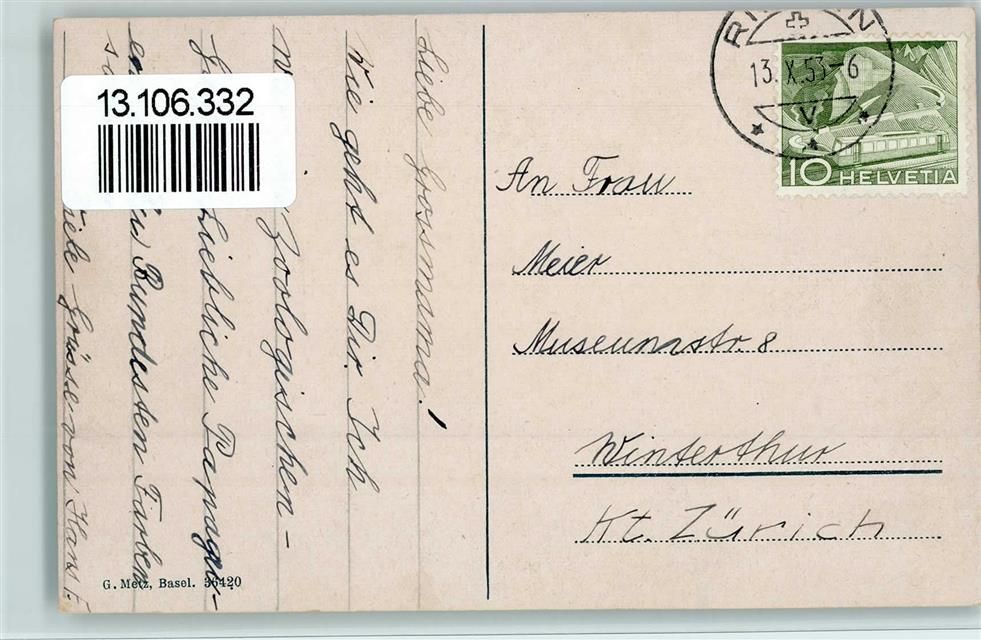 13.106.332
Liebe Grosmama!
Wie geht es Dir. Ich
Zoologischen-
Liebliche Papagei-
Bundesten Farben
Viele Grüsse von Hans F.
G. Metz, Basel. 36420
13.X.53-6
V
10 HELVETIA
An Frau
Meier
Museumstr. 8
Winterthur
Kt. Zürich